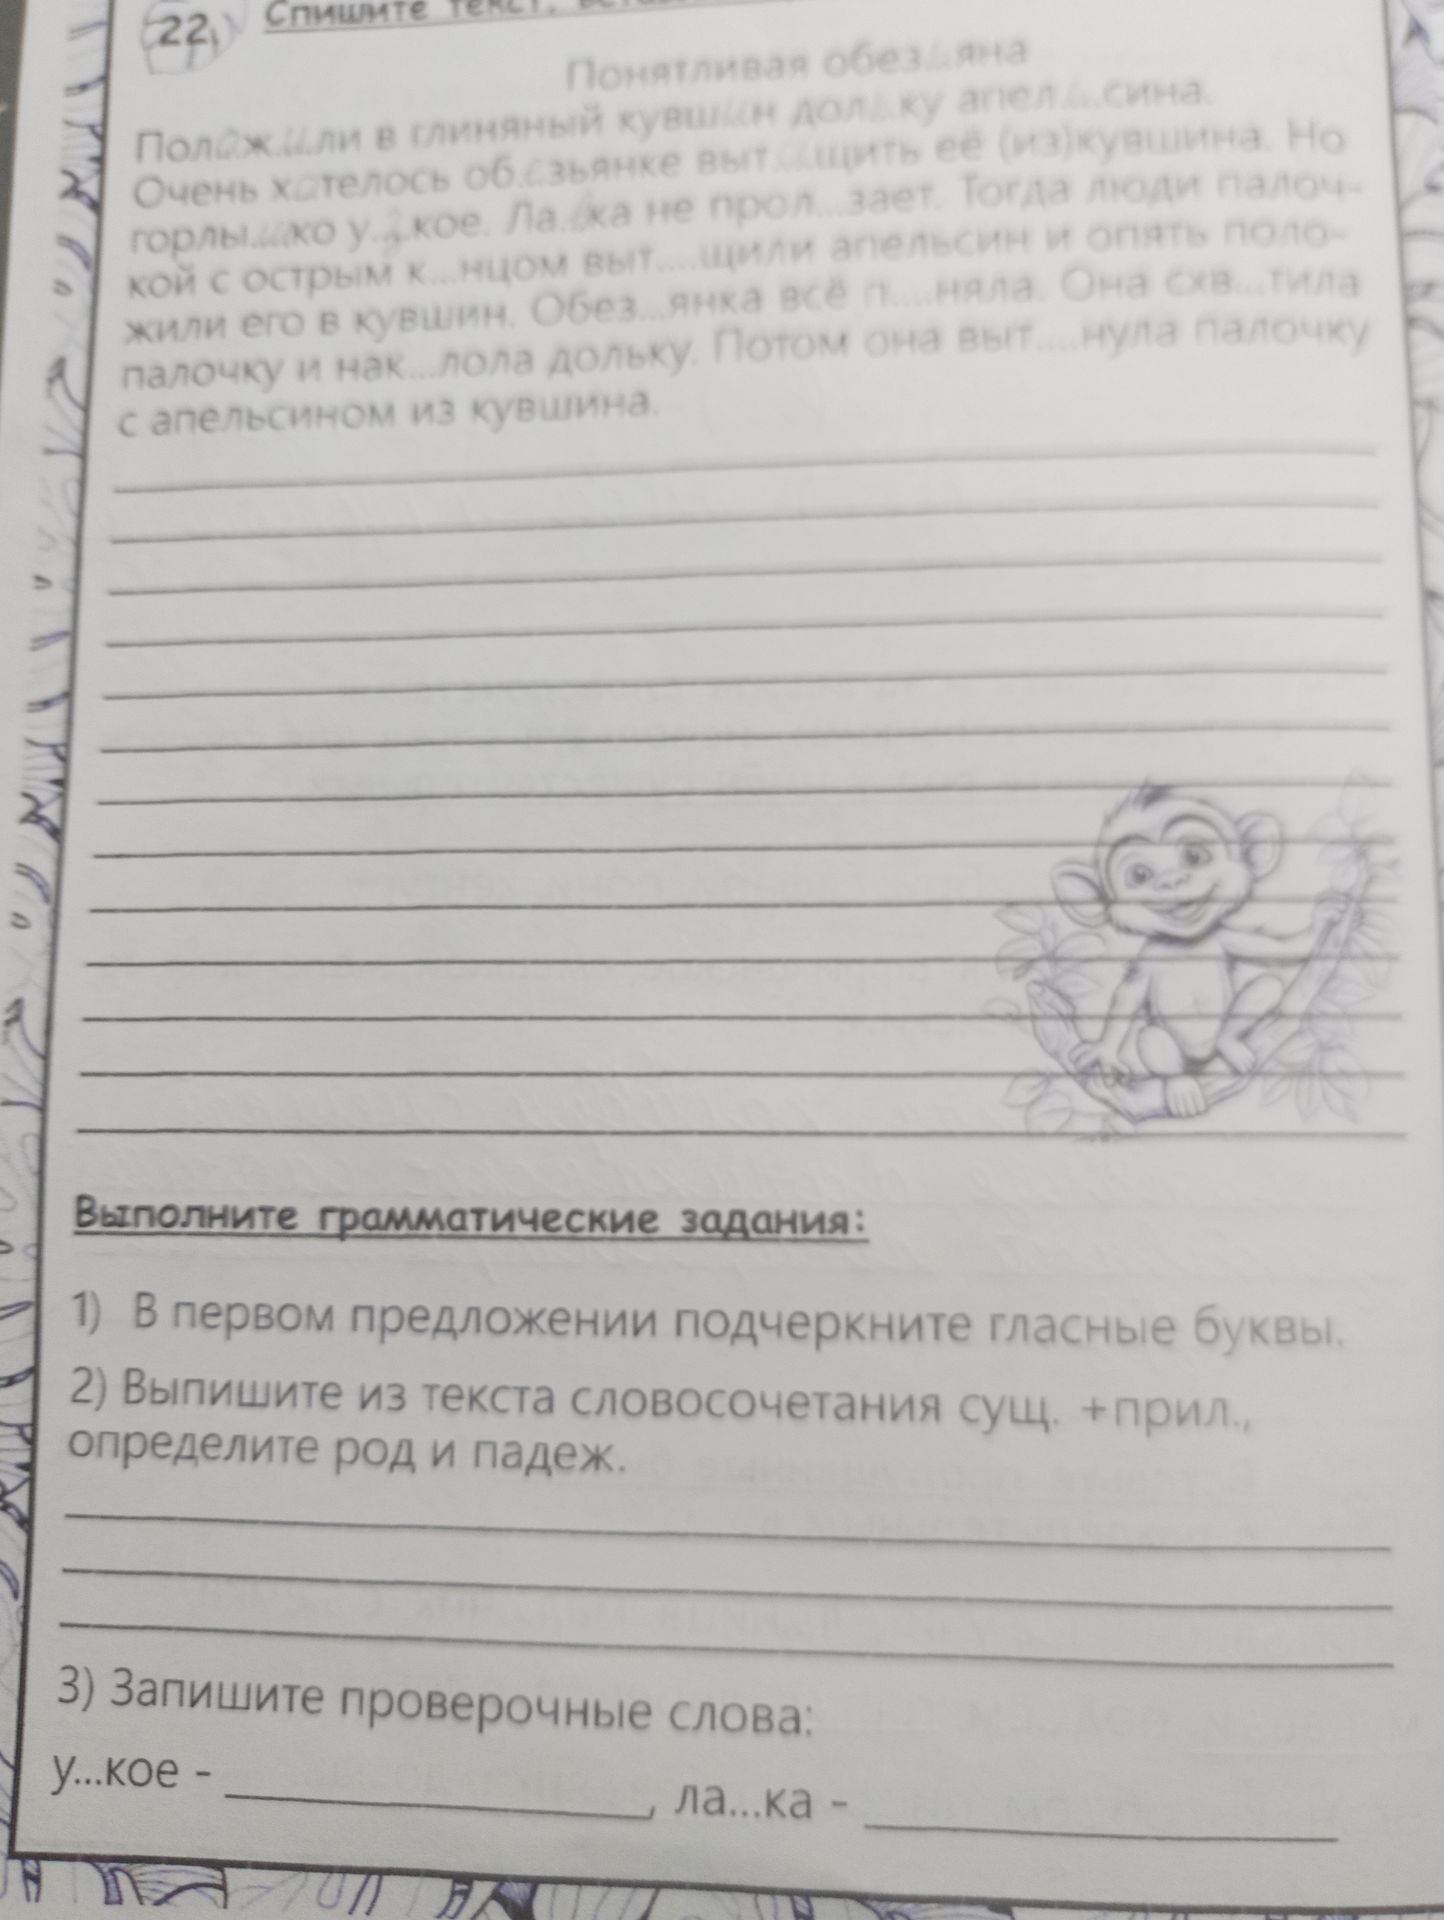 22.
Спишите текст,
Понятливая обезьяна
Положили в глиняный кувшин дольку апельсина.
Очень хотелось обезьянке вытащить её (из)кувшина. Но
горлышко узкое. Лапка не прол...зает. Тогда люди палоч-
кой с острым к...нцом выт....щили апельсин и опять поло-
жили его в кувшин. Обез...янка всё п....няла. Она схв...тила
палочку и нак...лола дольку. Потом она выт....нула палочку
с апельсином из кувшина.
Выполните грамматические задания:
1) В первом предложении подчеркните гласные буквы.
2) Выпишите из текста словосочетания сущ. +прил.,
определите род и падеж.
3) Запишите проверочные слова:
у...кое - , ла...ка -